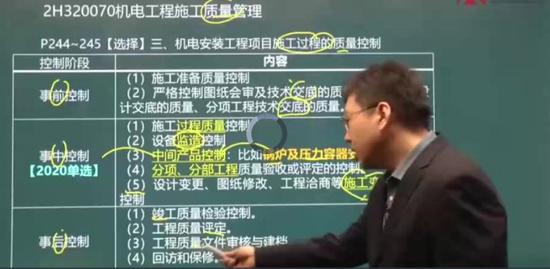 2H320070机电工程施工质量管理
P244~245【选择】三、机电安装工程项目施工过程的质量控制
控制阶段
内容
事前控制
(1) 施工准备质量控制
(2) 严格控制图纸会审及技术交底的质量
计交底的质量、分项工程技术交底的质量。
事中控制
【2020单选】
(1) 施工过程质量控制
(2) 设备监造控制
(3) 中间产品控制:比如锅炉及压力容器安
(4) 分项、分部工程质量验收或评定的控制
(5) 设计变更、图纸修改、工程洽商等施工变
控制
事后控制
(1) 竣工质量检验控制。
(2) 工程质量评定。
(3) 工程质量文件审核与建档
(4) 回访和保修。